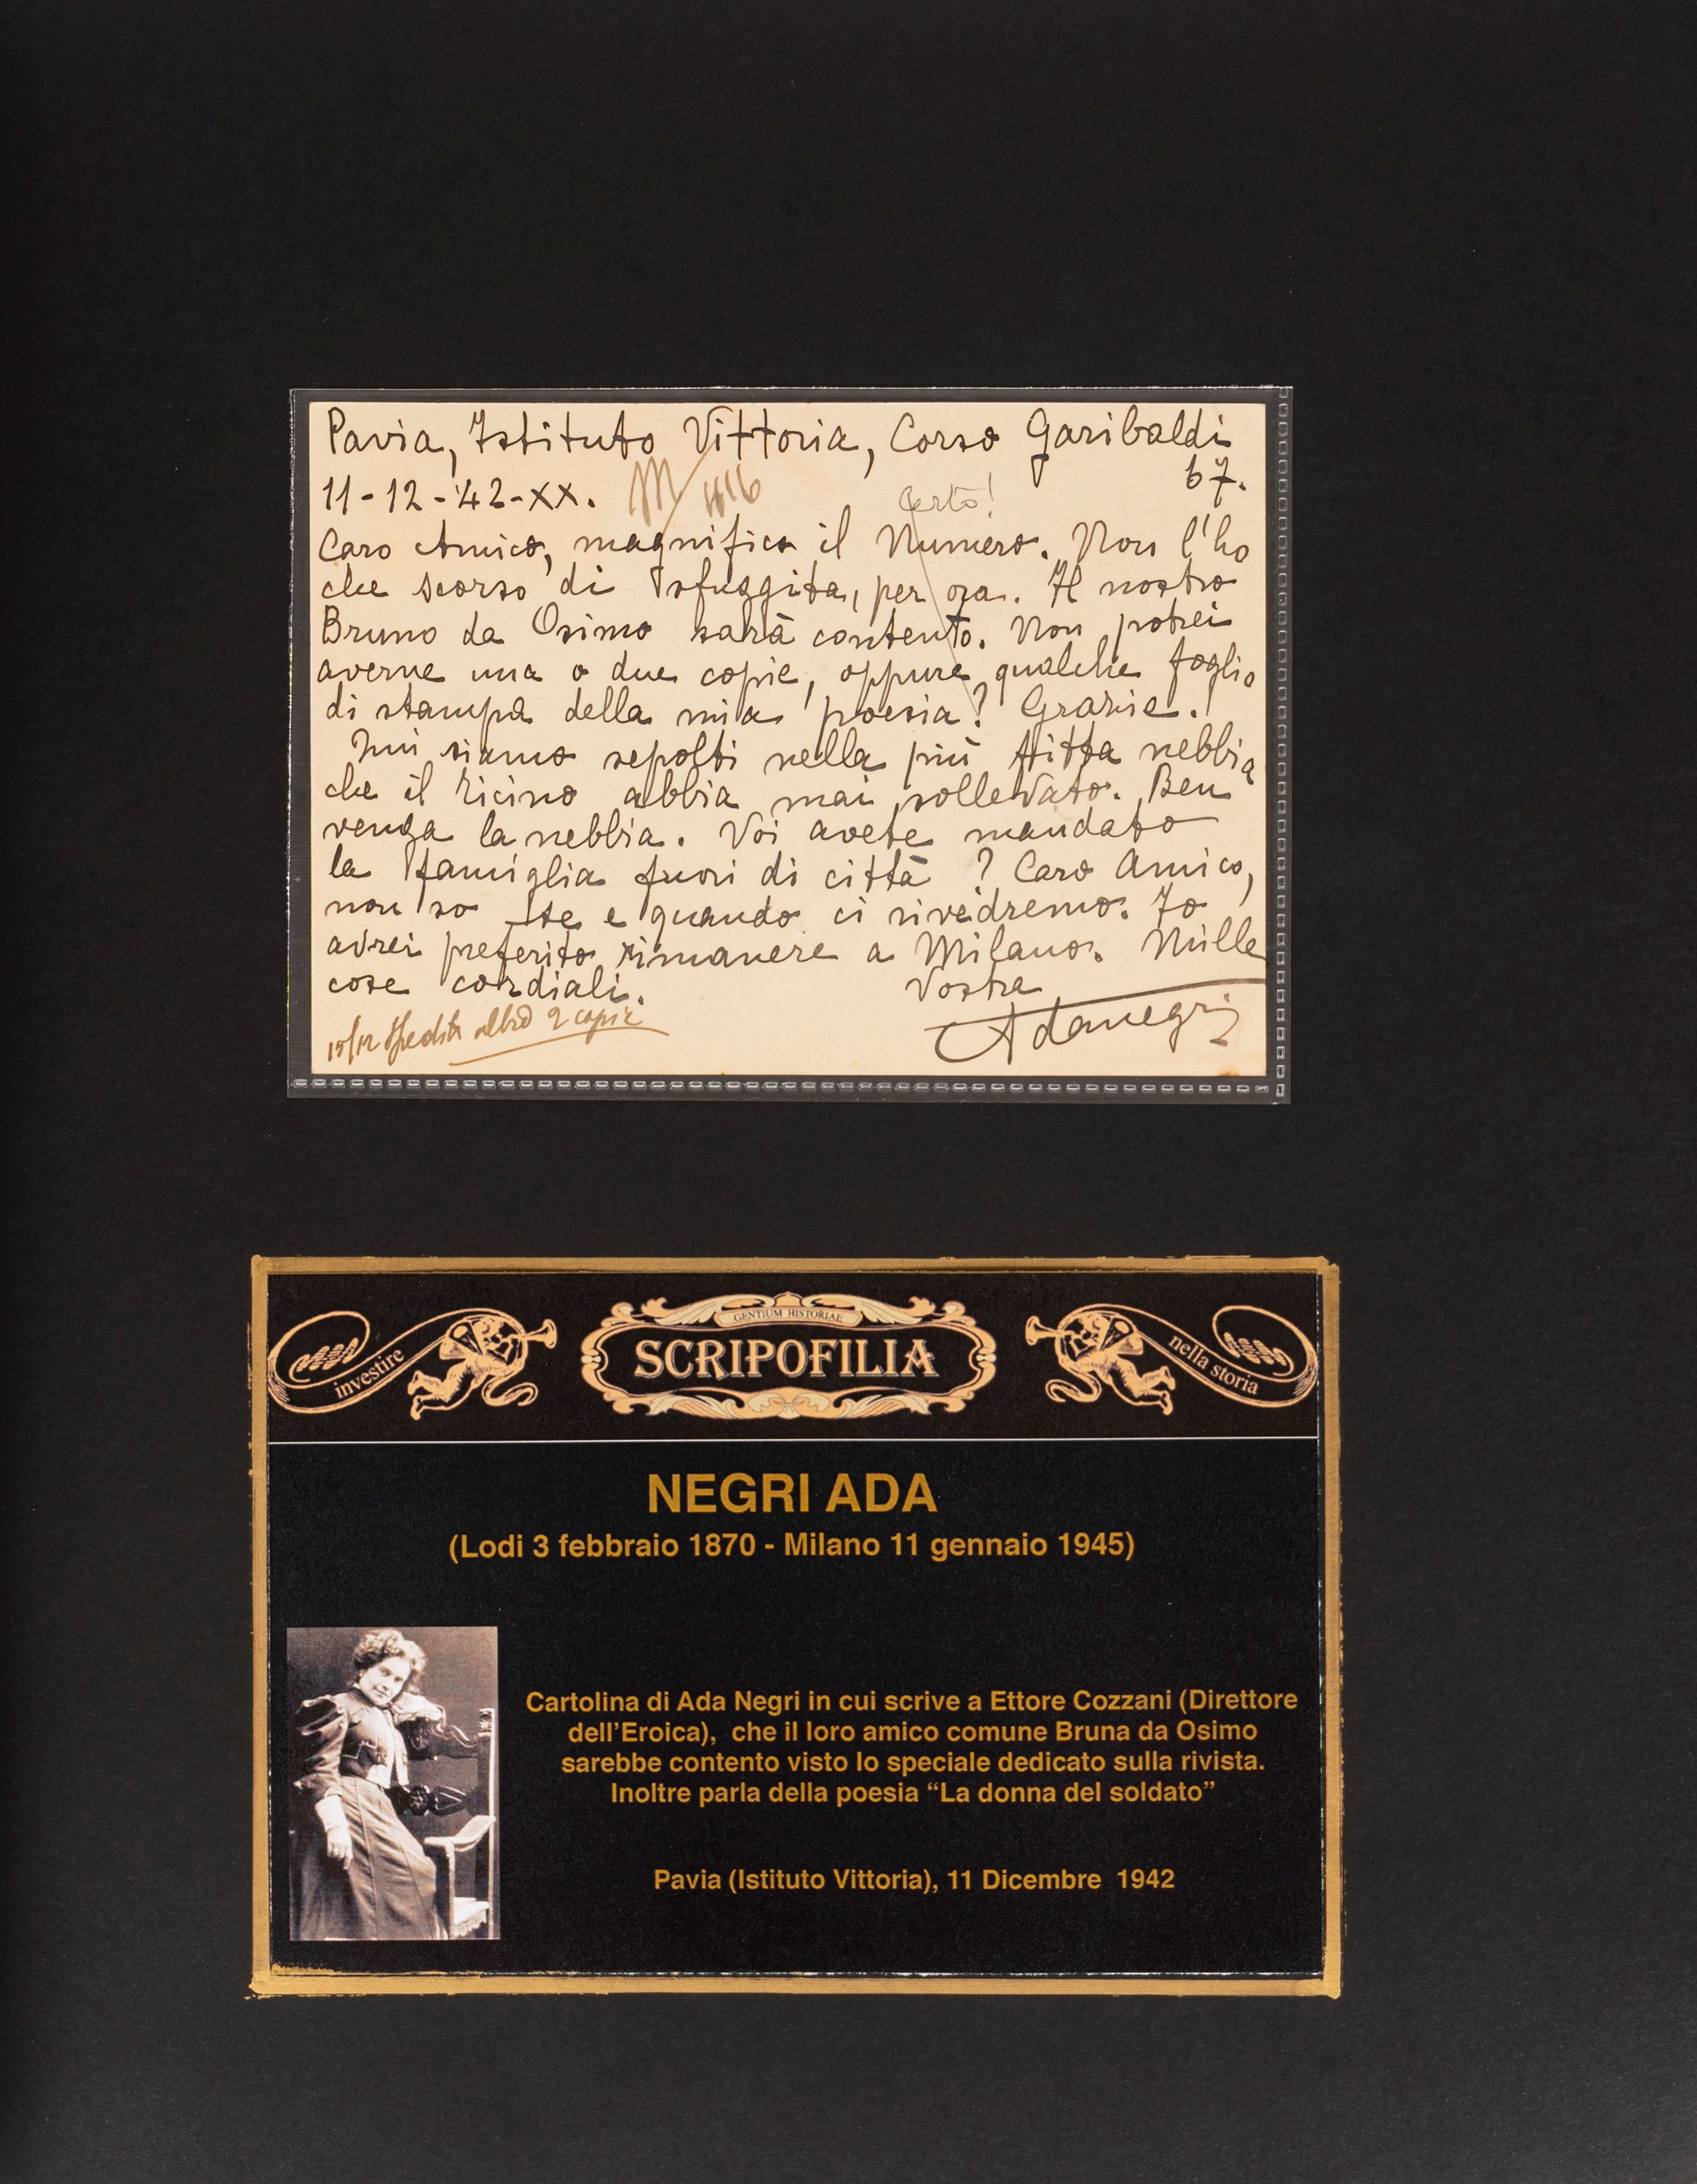 Pavia, Istituto Vittoria, Corso Garibaldi
67.
11-12-'42-XX.
1116
Certo!
Caro Amico, magnifico il Numero. Non l'ho
che scorso di sfuggita, per ora. Il nostro
Bruno da Osimo sarà contento. Non potrei
averne una o due copie, oppure qualche foglio
di stampa della mia poesia? Grazie.
Qui siamo sepolti nella più fitta nebbia
che il Ticino abbia mai sollevato. Ben
venga la nebbia. Voi avete mandato
la famiglia fuori di città? Caro Amico,
non so se e quando ci rivedremo. Io
avrei preferito rimanere a Milano. Mille
cose cordiali.
Vostra
Adanegri
15/12 Spedito 2 copie
GENTIUM HISTORIAE
investire SCRIPOFILIA nella storia
NEGRI ADA
(Lodi 3 febbraio 1870 - Milano 11 gennaio 1945)
Cartolina di Ada Negri in cui scrive a Ettore Cozzani (Direttore
dell'Eroica), che il loro amico comune Bruna da Osimo
sarebbe contento visto lo speciale dedicato sulla rivista.
Inoltre parla della poesia “La donna del soldato”
Pavia (Istituto Vittoria), 11 Dicembre 1942